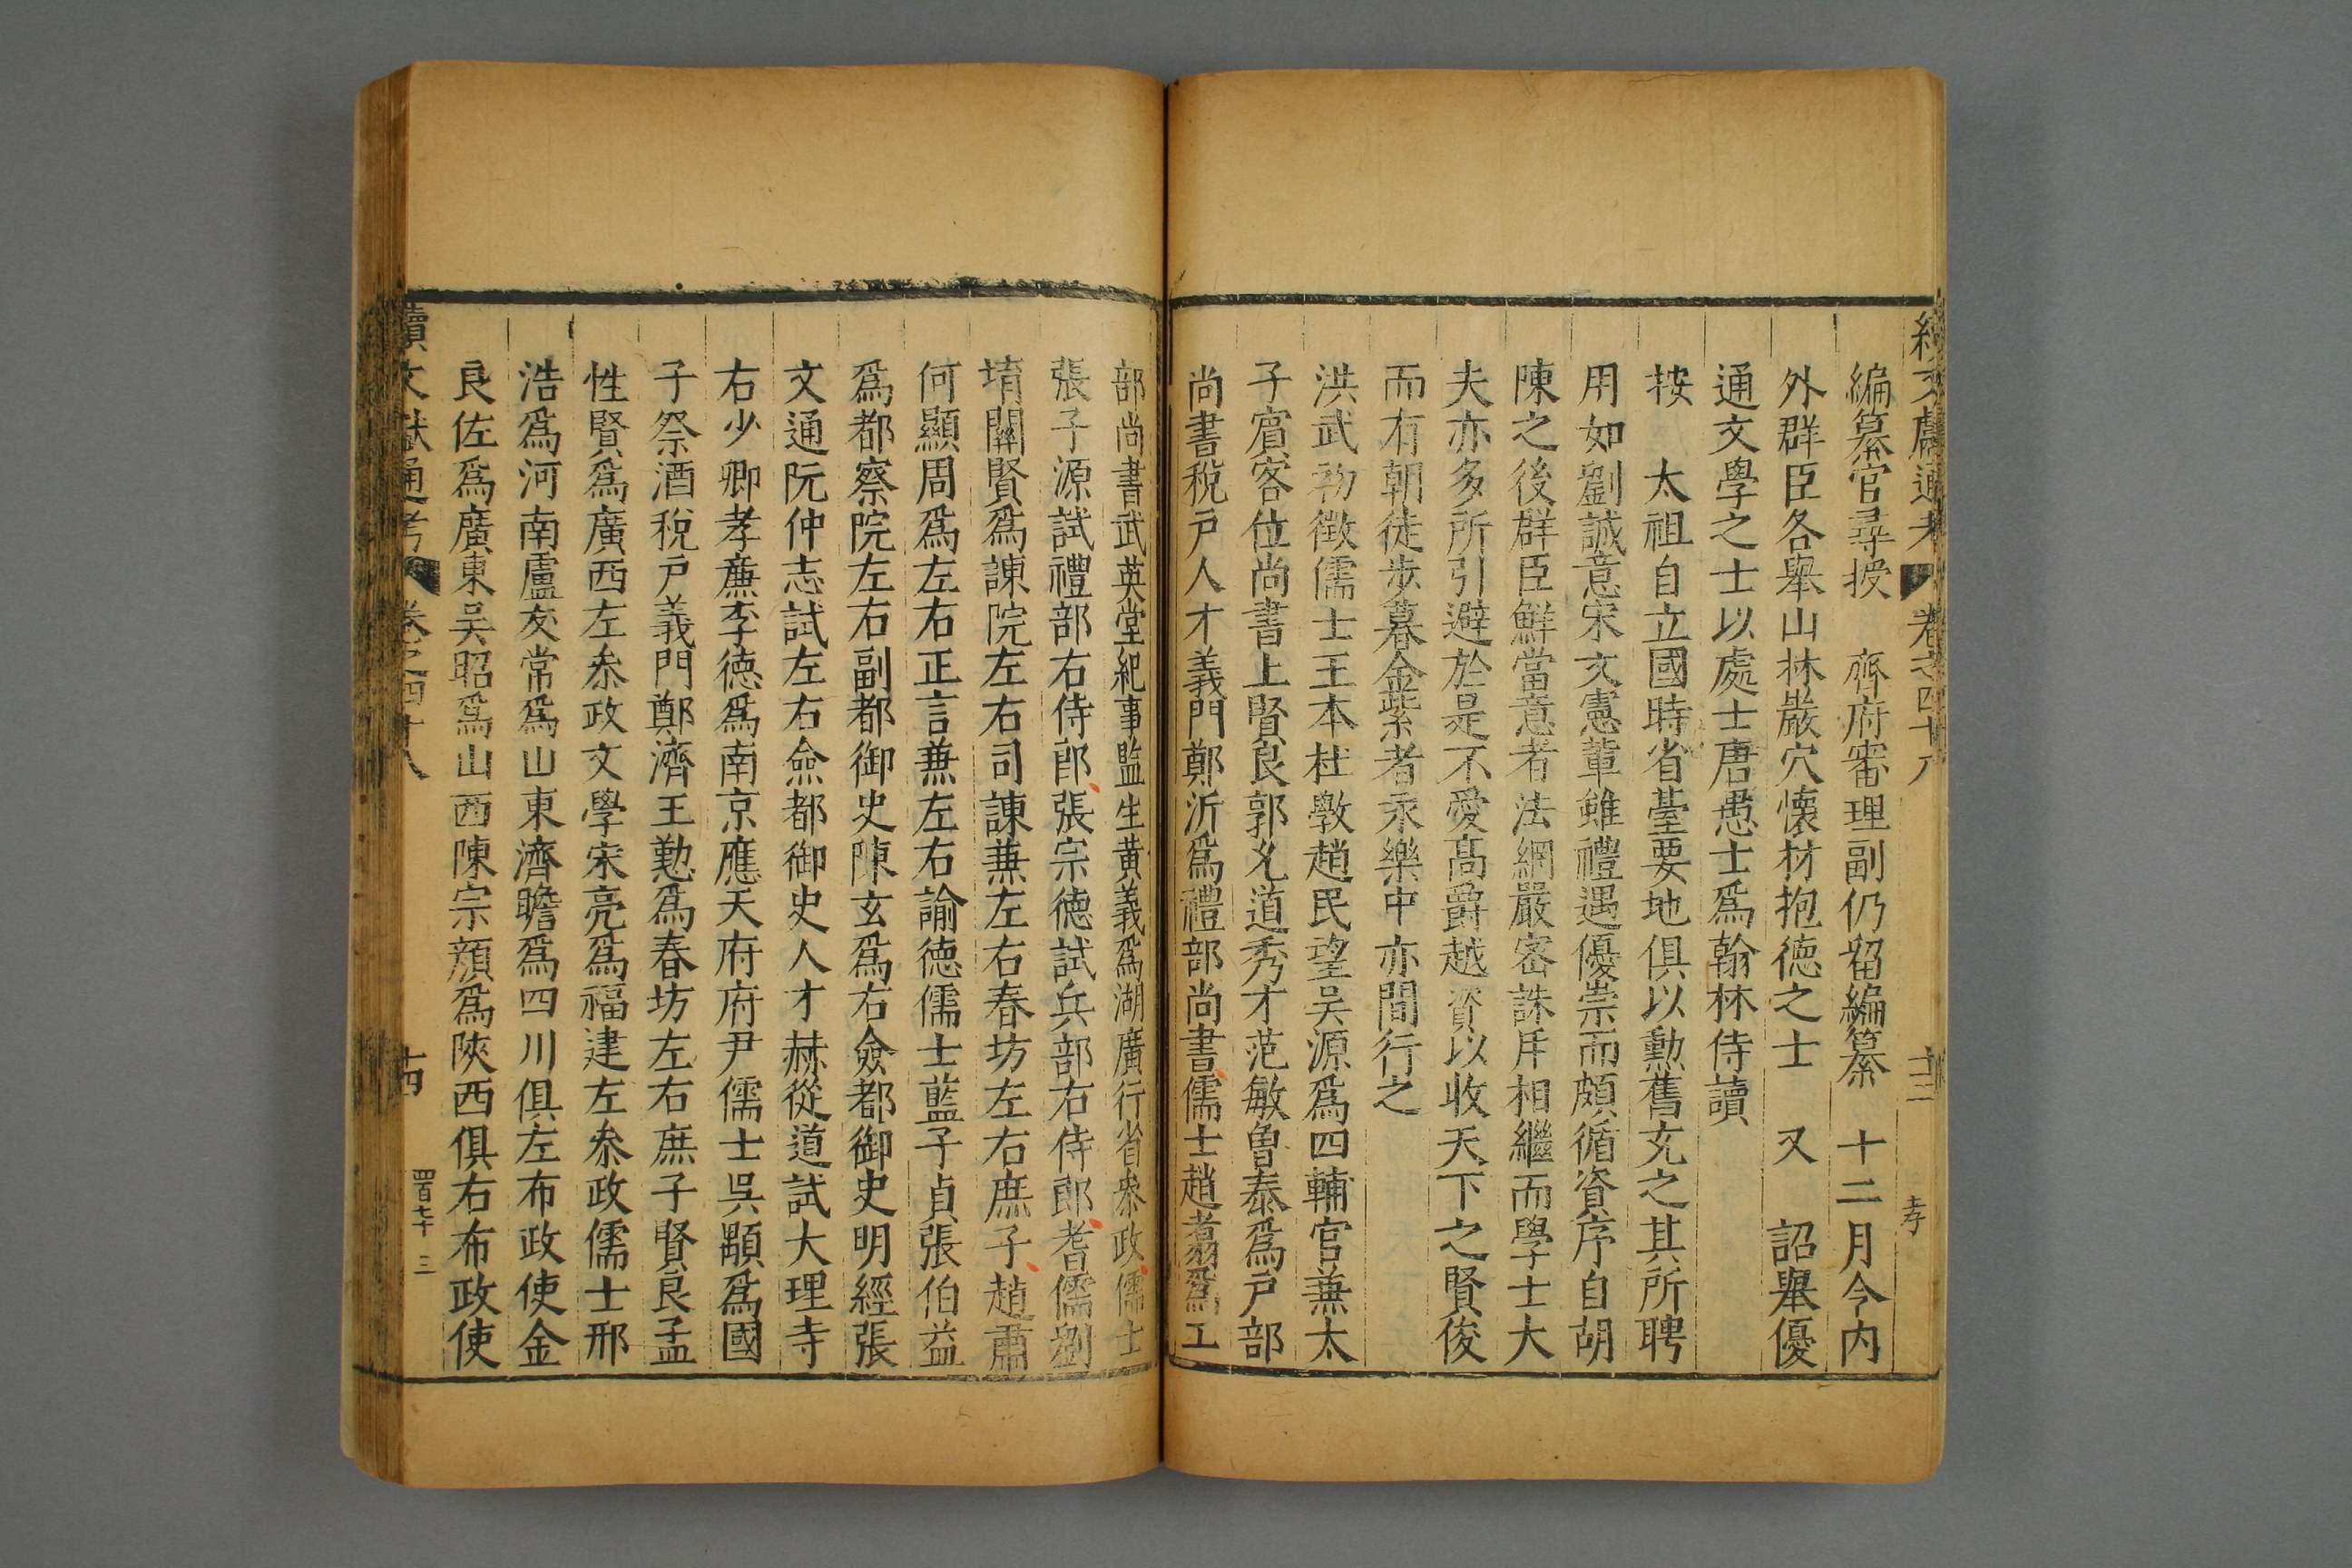 續文獻通考 卷之四十八 十三 孝
編纂官尋授 齊府審理副仍留編纂 十二月令内
外群臣各舉山林嚴穴懐材抱德之士 又 詔舉優
通文學之士以處士唐愚士爲翰林侍讀
按 太祖自立國時省臺要地俱以勳舊充之其所聘
用如劉誠意宋文憲輩雖禮遇優崇而頗循資序自胡
陳之後群臣鮮當意者法網嚴密誅斥相繼而學士大
夫亦多所引避於是不愛髙爵越資以收天下之賢俊
而有朝徒步暮金紫者永樂中亦間行之
洪武初徵儒士王本杜斆趙民望吳源爲四輔官兼太
子賓客位尚書上賢良郭允道秀才范敏魯泰爲戸部
尚書稅戸人才義門鄭沂爲禮部尚書儒士趙翥爲工
部尚書武英堂紀事監生黄義爲湖廣行省叅政儒士
張子源試禮部右侍郎張宗德試兵部右侍郎耆儒劉
堉關賢爲諫院左右司諫兼左右春坊左右庶子趙肅
何顯周爲左右正言兼左右諭德儒士藍子貞張伯益
爲都察院左右副都御史陳玄爲右僉都御史明經張
文通阮仲志試左右僉都御史人才赫從道試大理寺
右少卿孝亷李德爲南京應天府府尹儒士吳顒爲國
子祭酒稅戸義門鄭濟王懃爲春坊左右庶子賢良孟
性賢爲廣西左叅政文學宋亮爲福建左叅政儒士邢
浩爲河南盧友常爲山東濟瞻爲四川俱左布政使金
良佐爲廣東吴昭爲山西陳宗顔爲陝西俱右布政使
續文獻通考 卷之四十八 十四 四百七十三